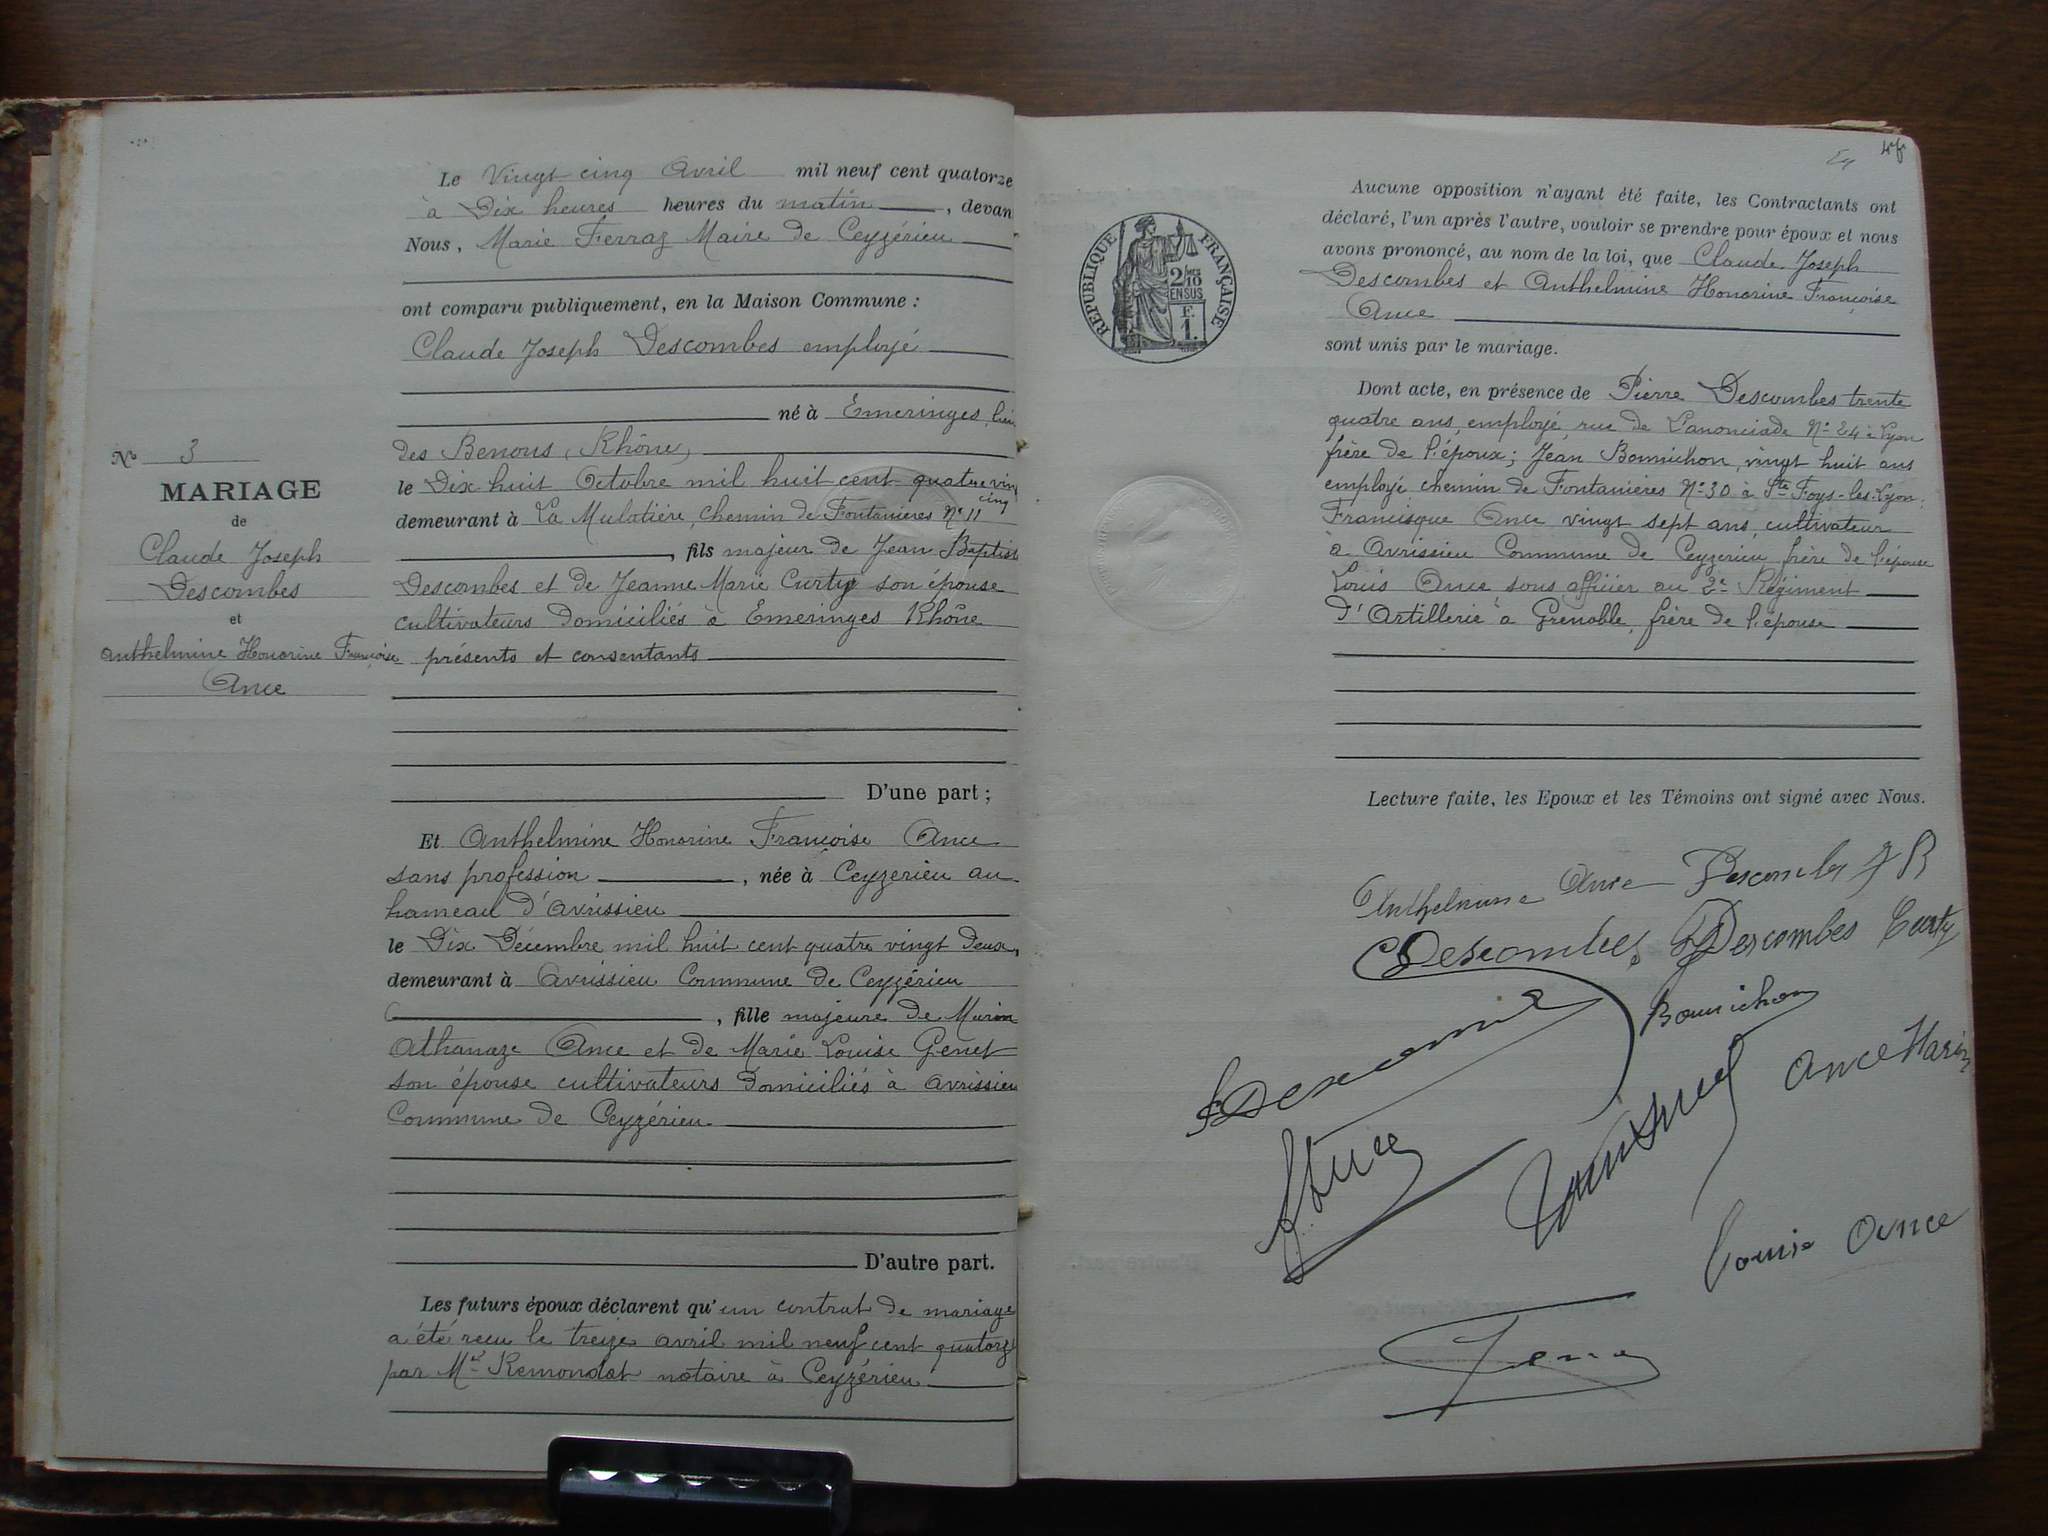 Le Vingt cinq Avril mil neuf cent quatorze
à Dix heures heures du matin, devan
Nous, Marie Ferraz Maire de Ceyzérieu
ont comparu publiquement, en la Maison Commune :
Claude Joseph Descombes employé
né à Émeringes, lieu
des Benons, (Rhône)
le Dix huit Octobre mil huit cent quatre vin
cinq
demeurant à La Mulatière, chemin de Fontanières N° 11
, fils majeur de Jean Baptist
Descombes et de Jeanne Marie Curty son épouse
cultivateurs Domiciliés à Emeringes Rhône
présents et consentants
N° 3
MARIAGE
de
Claude Joseph
Descombes
et
Anthelmine Honorine Françoise
Ance
D'une part ;
Et Anthelmine Honorine Françoise Ance
sans profession, née à Ceyzerieu au
hameau d'Avrissieu
le Dix Décembre mil huit cent quatre vingt deux,
demeurant à Avrissieu Commune de Ceyzérieu
, fille majeure de Marin
Athanaze Ance et de Marie Louise Genet
son épouse cultivateurs Domiciliés à Avrissieu
Commune de Ceyzérieu
D'autre part.
Les futurs époux déclarent qu'un contrat de mariage
a été reçu le treize avril mil neuf cent quatorz
par Me Remondat notaire à Ceyzérieu
Aucune opposition n'ayant été faite, les Contractants ont
déclaré, l'un après l'autre, vouloir se prendre pour époux et nous
avons prononcé, au nom de la loi, que Claude Joseph
Descombes et Anthelmine Honorine Françoise
Ance
sont unis par le mariage.
RÉPUBLIQUE FRANÇAISE
2/10
EN SUS
F.
1.
Dont acte, en présence de Pierre Descombes trente
quatre ans, employé, rue de L'anonciade N° 24 à Lyon
frère de l'époux; Jean Bonnichon, vingt huit ans
employé chemin de Fontanières N° 30 à Ste Foys-les-Lyon.
Francisque Ance vingt sept ans, cultivateur
à Avrissieu Commune de Ceyzerieu, frère de l'épouse
Louis Ance sous officier au 2e Régiment
d'Artillerie à Grenoble, frère de l'épouse
Lecture faite, les Epoux et les Témoins ont signé avec Nous.
Anthelmine Ance Descombes J B
CDescombes Descombes Curty
Bonnichon
Ance Marin
Louise Ance